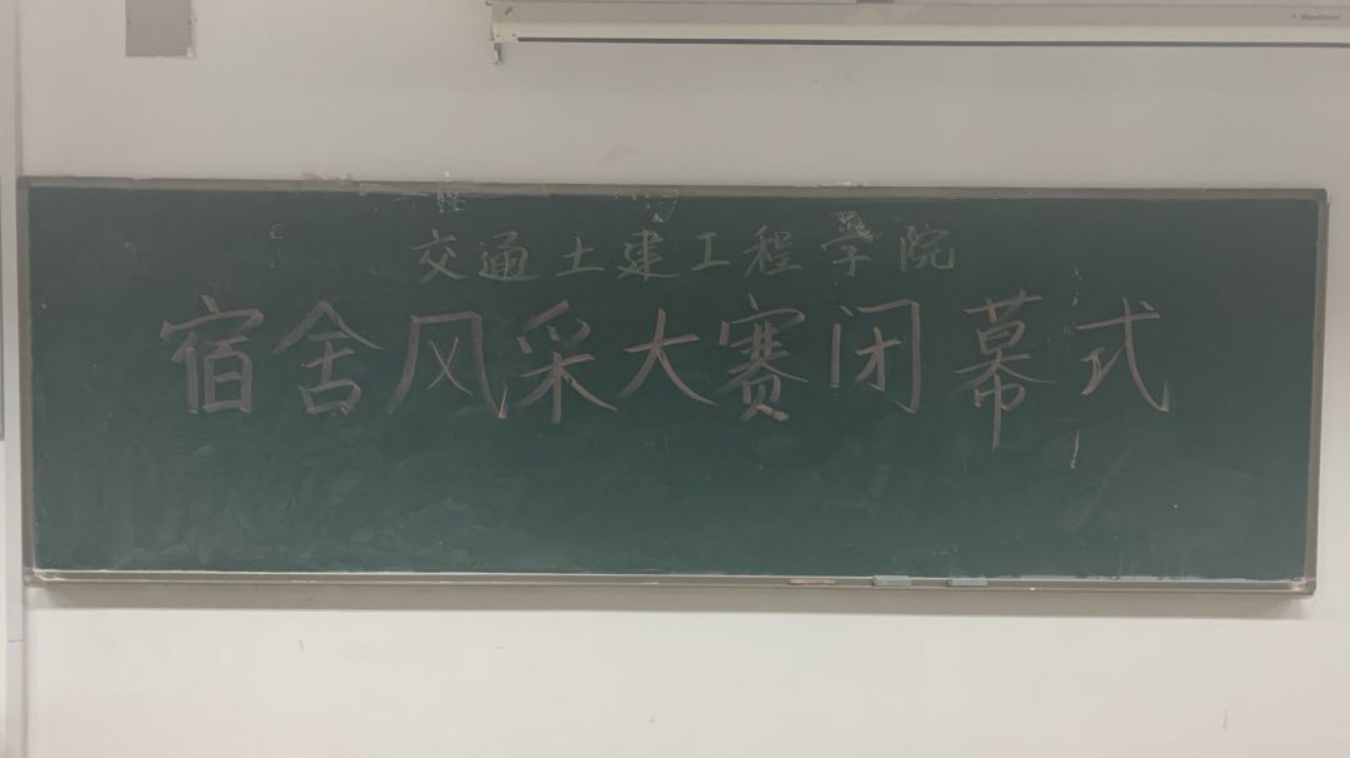 交通土建工程學院
宿舍风采大赛闭幕式